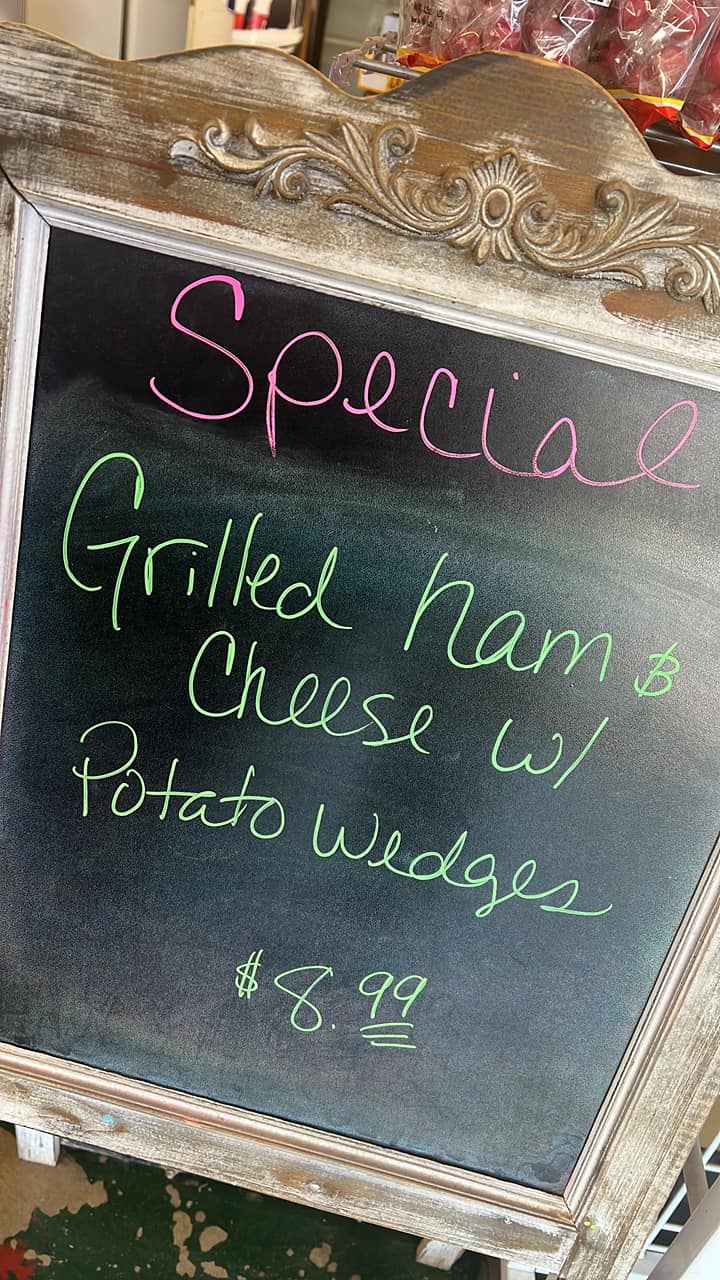 Special
Grilled ham &
Cheese w/
Potato Wedges
$8.99